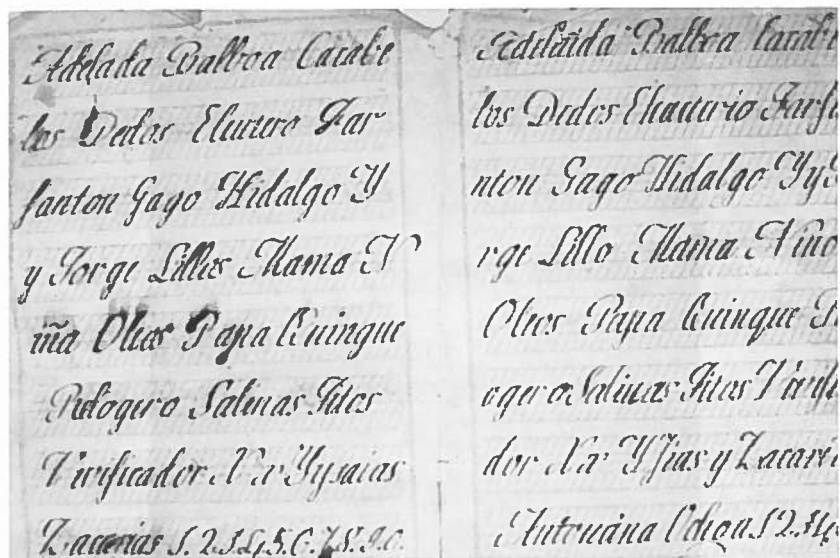 Adelada Balboa Carabe
los Dedos Electuro Far
fanton Gago Hidalgo Y
y Jorge Lillos Mama N
iña Olios Papa Quinque
Relogero Salinas Titos
Virificador N.xv Yysaias
Zacarias 1.2.3.4.5.6.7.8.9.0.
Adelaida Balboa Carab
los Dedos Ehacturio Farf
nton Gago Hidalgo Yys
rge Lillo Mama Nino
Olios Papa Quinque R
ogero Salinas Titos
dor N.xv Yſias y Zacar
Antoniana 1 2. 3 4